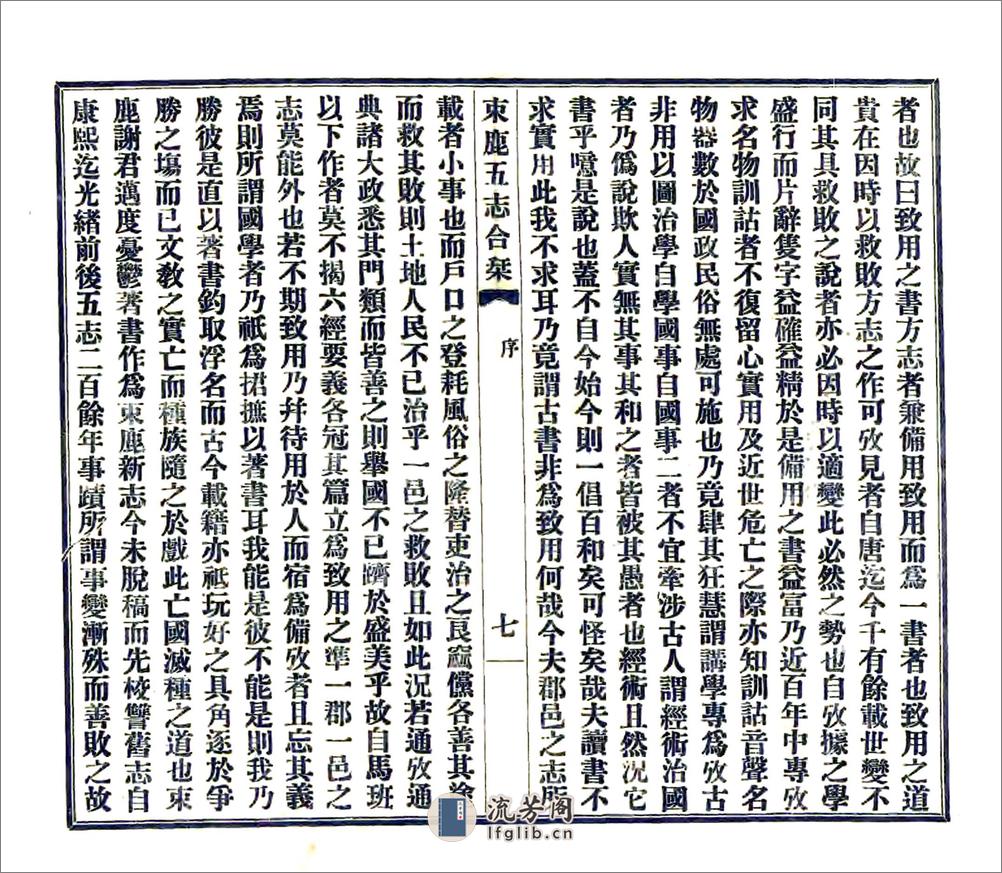 者也故曰致用之書方志者兼備用致用而爲一書者也致用之道
貴在因時以救敗方志之作可攷見者自唐迄今千有餘載世變不
同其具救敗之說者亦必因時以適變此必然之勢也自攷據之學
盛行而片辭隻字益確益精於是備用之書益富乃近百年中專攷
求名物訓詁者不復留心實用及近世危亡之際亦知訓詁音聲名
物器數於國政民俗無處可施也乃竟肆其狂慧謂講學專爲攷古
非用以圖治學自學國事自國事二者不宜牽涉古人謂經術治國
者乃僞說欺人實無其事其和之者皆被其愚者也經術且然況它
書乎噫是說也蓋不自今始今則一倡百和矣可怪矣哉夫讀書不
求實用此我不求耳乃竟謂古書非爲致用何哉今夫郡邑之志所
束鹿五志合栞
序
七
載者小事也而戶口之登耗風俗之隆替吏治之良窳儻各善其途
而救其敗則土地人民不已治乎一邑之救敗且如此況若通攷通
典諸大政悉其門類而皆善之則舉國不已躋於盛美乎故自馬班
以下作者莫不揭六經要義各冠其篇立爲致用之準一郡一邑之
志莫能外也若不期致用乃幷待用於人而宿爲備攷者且忘其義
焉則所謂國學者乃祇爲捃摭以著書耳我能是彼不能是則我乃
勝彼是直以著書釣取浮名而古今載籍亦祇玩好之具角逐於爭
勝之塲而已文敎之實亡而種族隨之於戲此亡國滅種之道也束
鹿謝君邁度憂鬱著書作爲束鹿新志今未脫稿而先校讐舊志自
康熙迄光緒前後五志二百餘年事蹟所謂事變漸殊而善敗之故
流芳阁
lfglib.cn